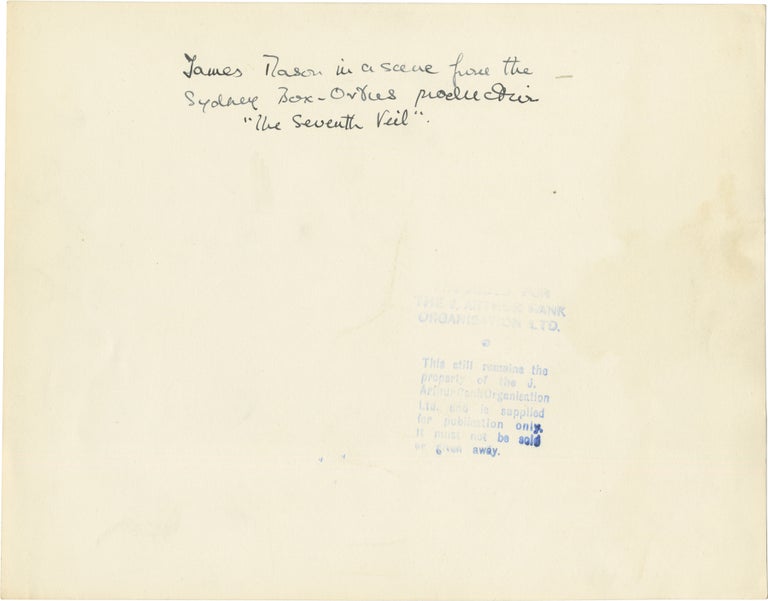 James Mason in a scene from the
Sydney Box-Ortus production
"The Seventh Veil".
FOR
THE J. ARTHUR RANK
ORGANISATION LTD.
This still remains the
property of the J.
Arthur Rank Organisation
Ltd. and is supplied
for publication only.
It must not be sold
or given away.